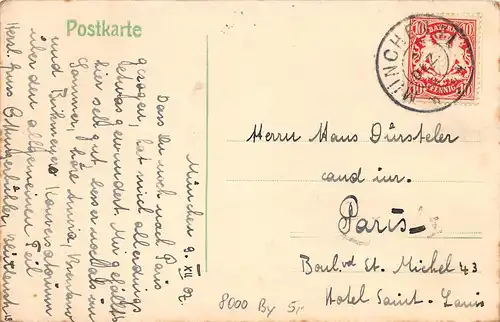 Postkarte
MÜNCHEN
10 BAYERN 10
10 PFENNIG 10
München 9. XII 07.
Dass Du noch nach Paris
gezogen, hat mich allerdings
etwas gewundert. Mir gefällts
hier sehr gut, besser noch als im
Sommer, höre
und Birkmeyer Konversatorium
über den allgemeinen Teil
Herzl. Gruss
Herrn Hans Dürsteler
cand iur.
Paris
Boul.vd St. Michel 43
Hotel Saint-Louis
8000 By 5,-